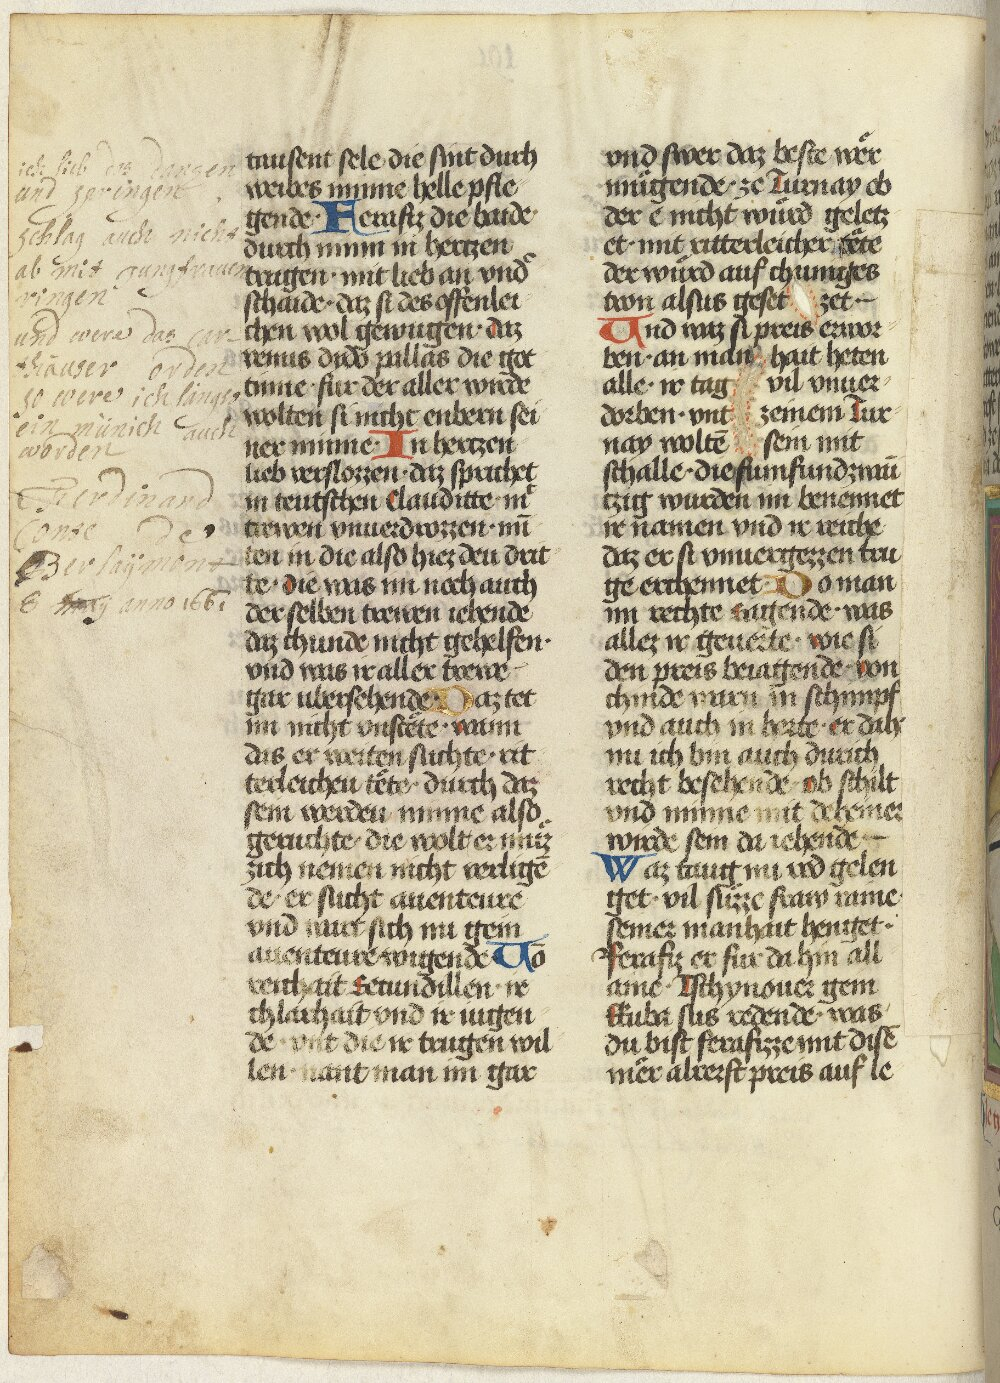 ich lieb das danzen
und zeringen
schlag auch nicht
ab mit jungfrauen
ringen
und were das car-
thäuser orden
so were ich längs
ein münich auch
worden
Ferdinand
Conte de
Berlaÿmont
anno 1661
tausent sele die sint durch
weibes minne helle pfle
gende · Ferafiz die baide
durch minn in hertzen
trugen · mit lieb an vnd
schaide · daz si des offenlei
chen wol gewugen · daz
venus dido pallas die get
tinne · fur der aller wirde
wolten si nicht enbern sei
ner minne · In hertzen
lieb verslozzen · daz sprichet
in teutschen Clauditte · in
trewen vnuerdrozzen ·
len in die also hiez den drit
te · die was im noch auch
der selben trewen iehende
daz chunde nicht gehelfen ·
vnd was ir aller trewe
gar vbersehende · Daz tet
im nicht vnstête · wann
das er weiten suchte · rit
terleichen tête · durch daz
sein werden minne also
geruchte · die wolt er
sich nemen nicht verligē
de · er sucht auenteure
vnd warf sich nu gein
auenteure wugende Uō
reichait Secundillen · ir
chlarhait vnd ir iugen
de · vnt die ir trugen wil
len · nant man im gar
vnd swer daz beste wêr
mûgende · ze Turnay ob
der ê nicht wûrd geletz
et · mit ritterleicher tête
der wûrd auf chuniges
tron alsus geset zet ·
Und waz si preis erwor
ben · an man hait heten
alle · ir tag vil vnuer
dorben · vnt zeinem Tur
nay woltē sein mit
schalle · die fumfundzwai
tzig wurden im benennet
ir namen vnd ir reiche
daz er si vnuergezzen tru
ge erchennet · Do man
im rechte sagende · was
allez ir geuerte · wie si
den preis beiagende · von
chinde warn in schimpf
vnd auch in herte · er dahт
nu ich bin auch durich
recht besehende · ob schilt
vnd minne mit deheiner
wirde sein da iehende
Waz taug nu vod gelen
get · vil sûzze fraw mine
seiner manhait henget ·
ferafiz er fur da hin all
aine · Tschynouer gein
Kuba sus redende · was
du bist ferafizze mit disē
mêr alrerst preis auf le